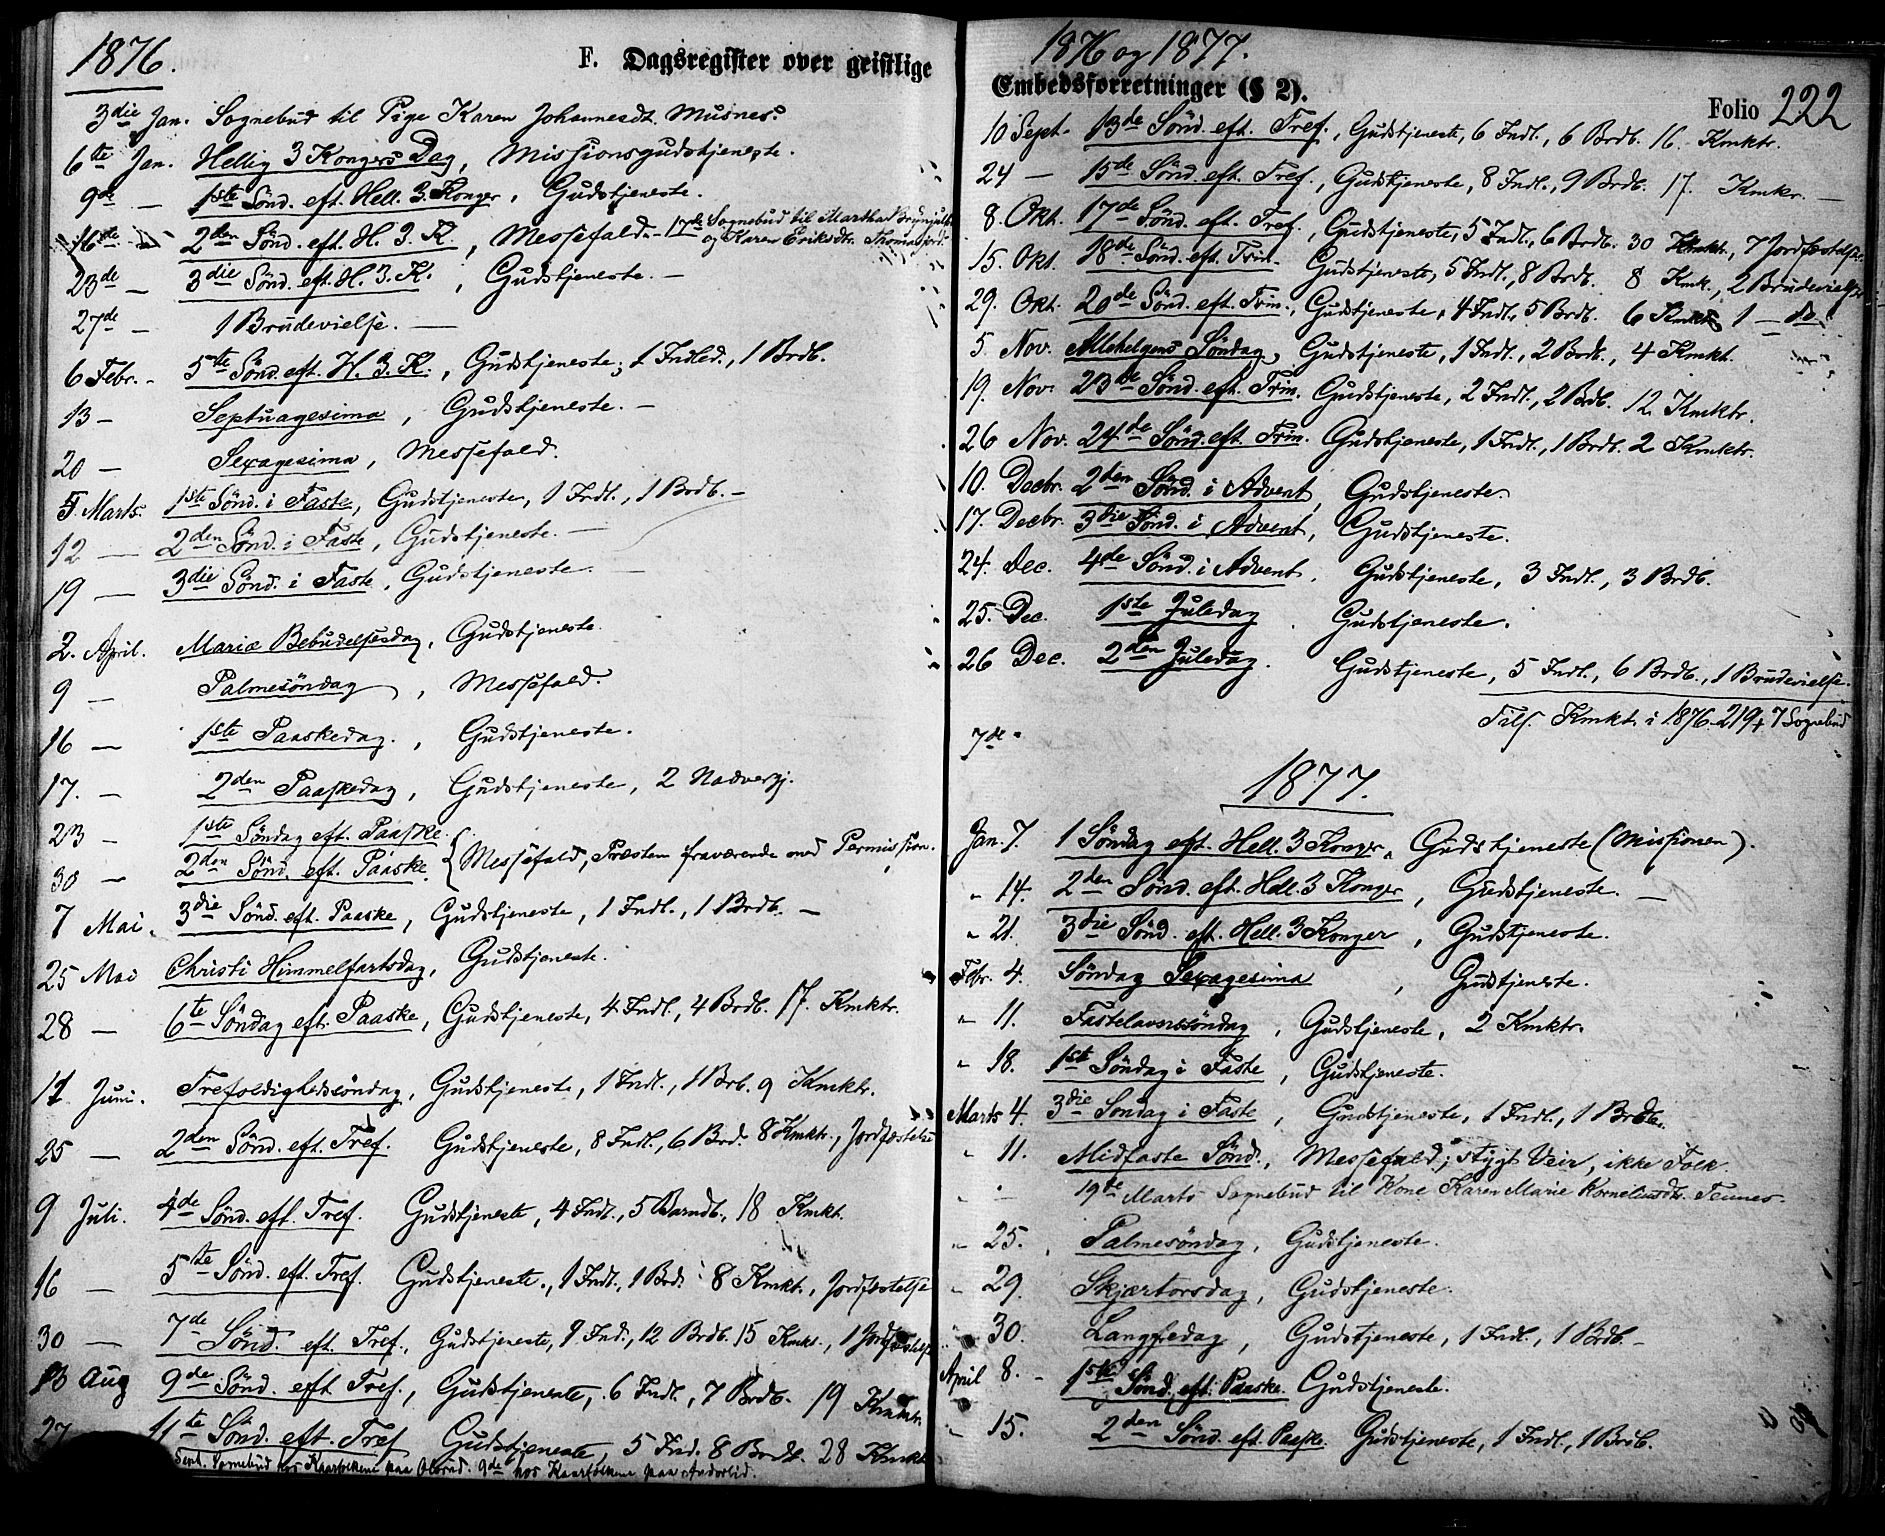 1876.
F. Dagsregister over geistlige
3die Jan. Sognebud til Pige Karen Johannesdt. Musnes.
6te Jan. Hellig 3 Kongers Dag, Missionsgudstjeneste.
9de — 1ste Sönd. eft. Hell. 3 Konger, Gudstjeneste.
16de — 2den Sönd. eft. H. 3. K., Messefald. — 17de Sognebud til Martha
og Karen Eriksdtr.
23de — 3die Sönd. eft. H. 3. K., Gudstjeneste. —
27de — 1 Brudevielse. —
6 Febr. - 5te Sönd. eft. H. 3. K., Gudstjeneste; 1 Indled., 1 Brdb.
13 — Septuagesima, Gudstjeneste. —
20 — Sexagesima, Messefald.
5 Marts. 1ste Sönd. i Faste, Gudstjeneste, 1 Indl., 1 Brdb. —
12 — 2den Sönd. i Faste, Gudstjeneste. —
19 — 3die Sönd. i Faste, Gudstjeneste. —
2. April. Mariæ Bebudelsesdag, Gudstjeneste.
9 — Palmesöndag, Messefald.
16 — 1ste Paaskedag., Gudstjeneste.
17. — 2den Paaskedag, Gudstjeneste, 2 Nadvergj.
23 — 1ste Söndag eft. Paaske.
30 — 2den Sönd. eft. Paaske. { Messefald, Præsten fraværende med Permission.
7 Mai. 3die Sönd. eft. Paaske, Gudstjeneste, 1 Indl., 1 Brdb. —
25 Mai Christi Himmelfartsdag, Gudstjeneste.
28 — 6te Söndag eft. Paaske, Gudstjeneste, 4 Indl., 4 Brdb. 17. Kmktr.
11 Juni. Trefoldighedssöndag, Gudstjeneste, 1 Indl., 1 Brb. 9 Kmktr.
25 — 2den Sönd. eft. Tref. Gudstjeneste, 8 Indl., 6 Brd. 8 Kmktr., Jordfæstelse
9 Juli. 4de Sönd. eft. Tref. Gudstjeneste, 4 Indl., 5 Barndb., 18 Kmkt.
16 — 5te Sönd. eft. Tref. Gudstjeneste., 1 Indl., 1 Brd. 8 Kmkt., Jordfæstelse
30 — 7de Sönd. eft. Tref., Gudstjeneste, 9 Ind., 12 Brdb. 15 Kmkt., 1 Jordfæstelse
13 Aug 9de Sönd. eft. Tref., Gudstjeneste, 6 Indl., 7 Brdb. 19 Kmktr.
27 11te Sönd. eft. Tref Gudstjeneste, 5 Ind. 8 Brdb. 28 Kmkt
Sept. Sognebud hos Kaarfolkene paa 9de hos Kaarfolkene paa
1876 og 1877.
Embedsforretninger (§ 2).
Folio 222
10 Sept. 13de Sönd. eft. Tref., Gudstjeneste, 6 Indl., 6 Brdb. 16. Kmktr.
24 — 15de Sönd. eft. Tref., Gudstjeneste, 8 Indl., 9 Brdb. 17. Kmkr. —
8. Okt. 17de Sönd. eft. Tref., Gudstjeneste, 5 Indl., 6 Brdb. 30 Kmkt., 7 Jordfæstelser.
15. Okt. 18de Sönd. eft. Trin. Gudstjeneste, 5 Indl., 8 Brdb. 8 Kmk., 2 Brudevielser
29. Okt. 20de Sönd. eft. Trin., Gudstjeneste, 4 Indl., 5 Brdb. 6 Kmkt 1 — do
5. Nov. Allehelgens Söndag, Gudstjeneste, 1 Indl., 2 Brdb., 4 Kmkt.
19. Nov. 23de Sönd. eft. Trin. Gudstjeneste, 2 Indl., 2 Brdb. 12. Kmktr.
26 Nov. 24de Sönd. eft. Trin. Gudstjeneste, 1 Indl., 1 Brdb. 2 Kmktr.
10. Decbr. 2den Sönd. i Advent, Gudstjeneste.
17. Decbr. 3die Sönd. i Advent, Gudstjeneste.
24. Dec. 4de Sönd. i Advent. Gudstjeneste, 3 Indl., 3 Brdb.
25. Dec. 1ste Juledag. Gudstjeneste.
26 Dec. 2den Juledag. Gudstjeneste, 5 Indl., 6 Brdb., 1 Brudevielse.
Tils. Kmkt. i 1876. 219 + 7 Sognebud
7de
1877.
Jan. 7. 1 Söndag eft. Hell. 3 Konger, Gudstjeneste (Missionen).
" 14. 2den Sönd. eft. Hell. 3 Konger, Gudstjeneste. —
" 21. 3die Sönd. eft. Hell. 3 Konger, Gudstjeneste.
Febr. 4. Söndag Sexagesima, Gudstjeneste.
" 11. Fastelavnssöndag, Gudstjeneste, 2 Kmktr.
" 18. 1ste Söndag i Faste, Gudstjeneste.
Marts 4. 3die Söndag i Faste, Gudstjeneste, 1 Indl., 1 Brdb.
" 11. Midfaste Sönd., Messefald; stygt Veir, ikke Folk.
" — 19de Marts Sognebud til Kone Karen Marie Korneliusdtr. Tennes.
" 25. Palmesöndag, Gudstjeneste.
" 29. Skjærtorsdag, Gudstjeneste.
" 30. Langfredag, Gudstjeneste, 1 Indl., 1 Brdb. —
April 8. - 1ste Sönd. eft. Paaske. Gudstjeneste.
" 15. 2den Sönd. eft. Paaske. Gudstjeneste, 1 Indl., 1 Brdb.